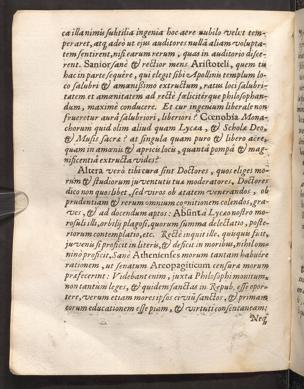 ca illa nimis subtilia ingenia hoc aere nubilo velut tem-
perares, atq; adeò ut ejus auditores nullâ aliam volupta-
tem sentirent, nisi earum rerum, quas in auditorio disse-
rent. Sanior sanè & rectior mens Aristoteli, quem tu
hac in parte sequêre, qui elegit sibi Apollinis templum lo-
co salubri & amœnissimo extructum, ratus loci salubri-
tatem et amœnitatem ad rectè fœlicitèrque philosophan-
dum, maximè conducere. Et cur ingenium liberale non
frueretur aurâ salubriori, libertori? Cœnobia Mona-
chorum quid olim aliud quam Lycea, & Scholæ Deo,
& Musis sacræ? at singula quam puro & libero aere,
quam in amœnis & apricis locis, quantâ pompâ & mag-
nificentiâ extructa vides?
Altera verò tibi cura sint Doctores, quos eliges mo-
rum & studiorum juventutis tuæ moderatores, Doctores
dico non quoslibet, sed viros ob ætatem venerandos, ob
prudentiam & rerum omnium cognitionem colendos, gra-
ves, & ad docendum aptos: Absint à Lyceo nostro mo-
rosuli illi, orbilij plagosi, quorum summa delectatio, poste-
riorum contemplatio, etc. Rectè inquit ille, quiquis sit,
juvenis si proficit in literis, & deficit in moribus, nihil omni-
nò proficit, Sanè Athenienses morum tantam habuêre
rationem, ut senatum Areopagiticum censura morum
præfecerint: Videbant enim, juxta Philosophi monitum,
non tantum leges, & quidem sanctas in Repub. esse opor-
tere, verum etiam mores ipsos civiũ sanctos, & primam
eorum educationem esse piam, & virtuti consentaneam:
Neq;